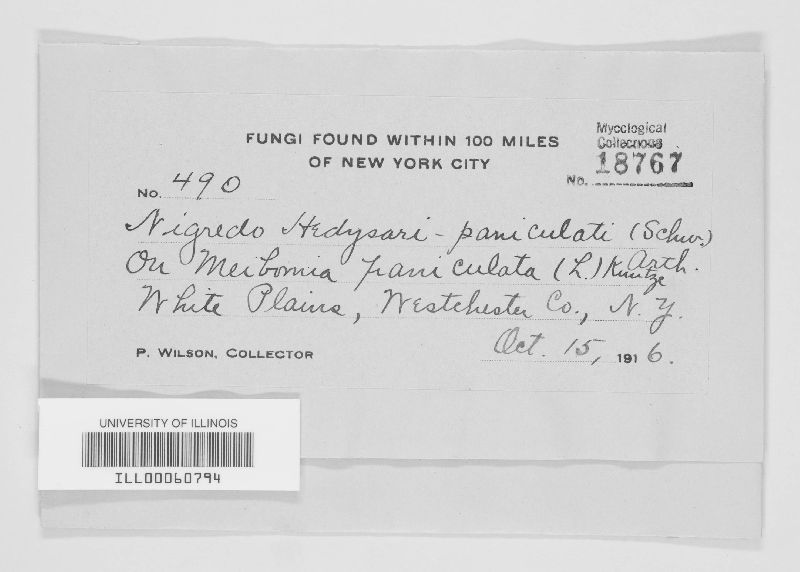 FUNGI FOUND WITHIN 100 MILES
OF NEW YORK CITY
Mycological
Collections
No. 18767
No. 490
Nigredo Hedysari-paniculati (Schw.)
Arth.
On Meibomia paniculata (L.) Kuntze
White Plains, Westchester Co., N. Y.
Oct. 15, 1916.
P. WILSON, COLLECTOR
UNIVERSITY OF ILLINOIS
ILL00060794